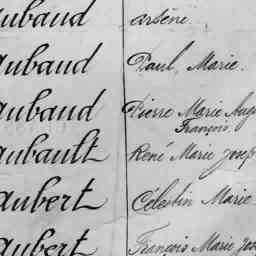 aubaud Arsène.
aubaud Paul, Marie.
aubaud Pierre Marie Aug
François.
aubault René Marie Josep
aubert Célestin Marie
aubert François Marie Jos